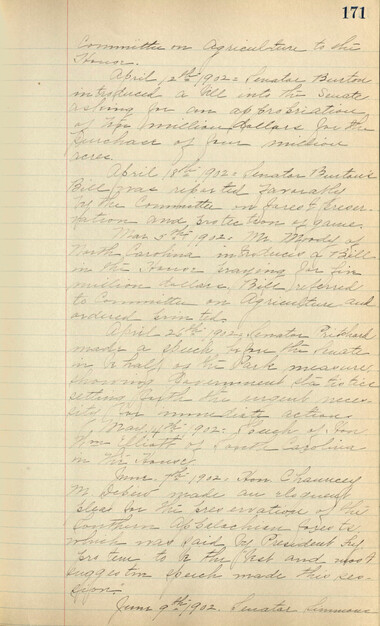 171
Committee on Agriculture to the
House.
April 12th 1902: Senator Burton
introduced a Bill into the Senate
asking for an appropriation
of ten million dollars for the
purchase of four million
acres.
April 18th 1902: Senator Burton's
Bill was reported favorably
by the Committee on Forest Reser-
vation and protection of game.
Mar. 5th 1902: Mr Moody of
North Carolina introduces a Bill
in the House praying for ten
million dollars. Bill referred
to Committee on Agriculture and
ordered printed.
April 26th 1902; Senator Pritchard
made a speech upon the Senate
in behalf of the Park measure,
showing Government statistics
setting forth the urgent neces-
sity for immediate action.
May 9th 1902: Speech of Hon
Wm Elliott of South Carolina
in the House.
June 7th 1902: Hon. Chauncey
M Depew made an eloquent
plea for the preservation of the
Southern Appalachian forests,
which was said by President
to be the best and most
speech made this ses-
sion.
June 9th 1902. Senator Simmons